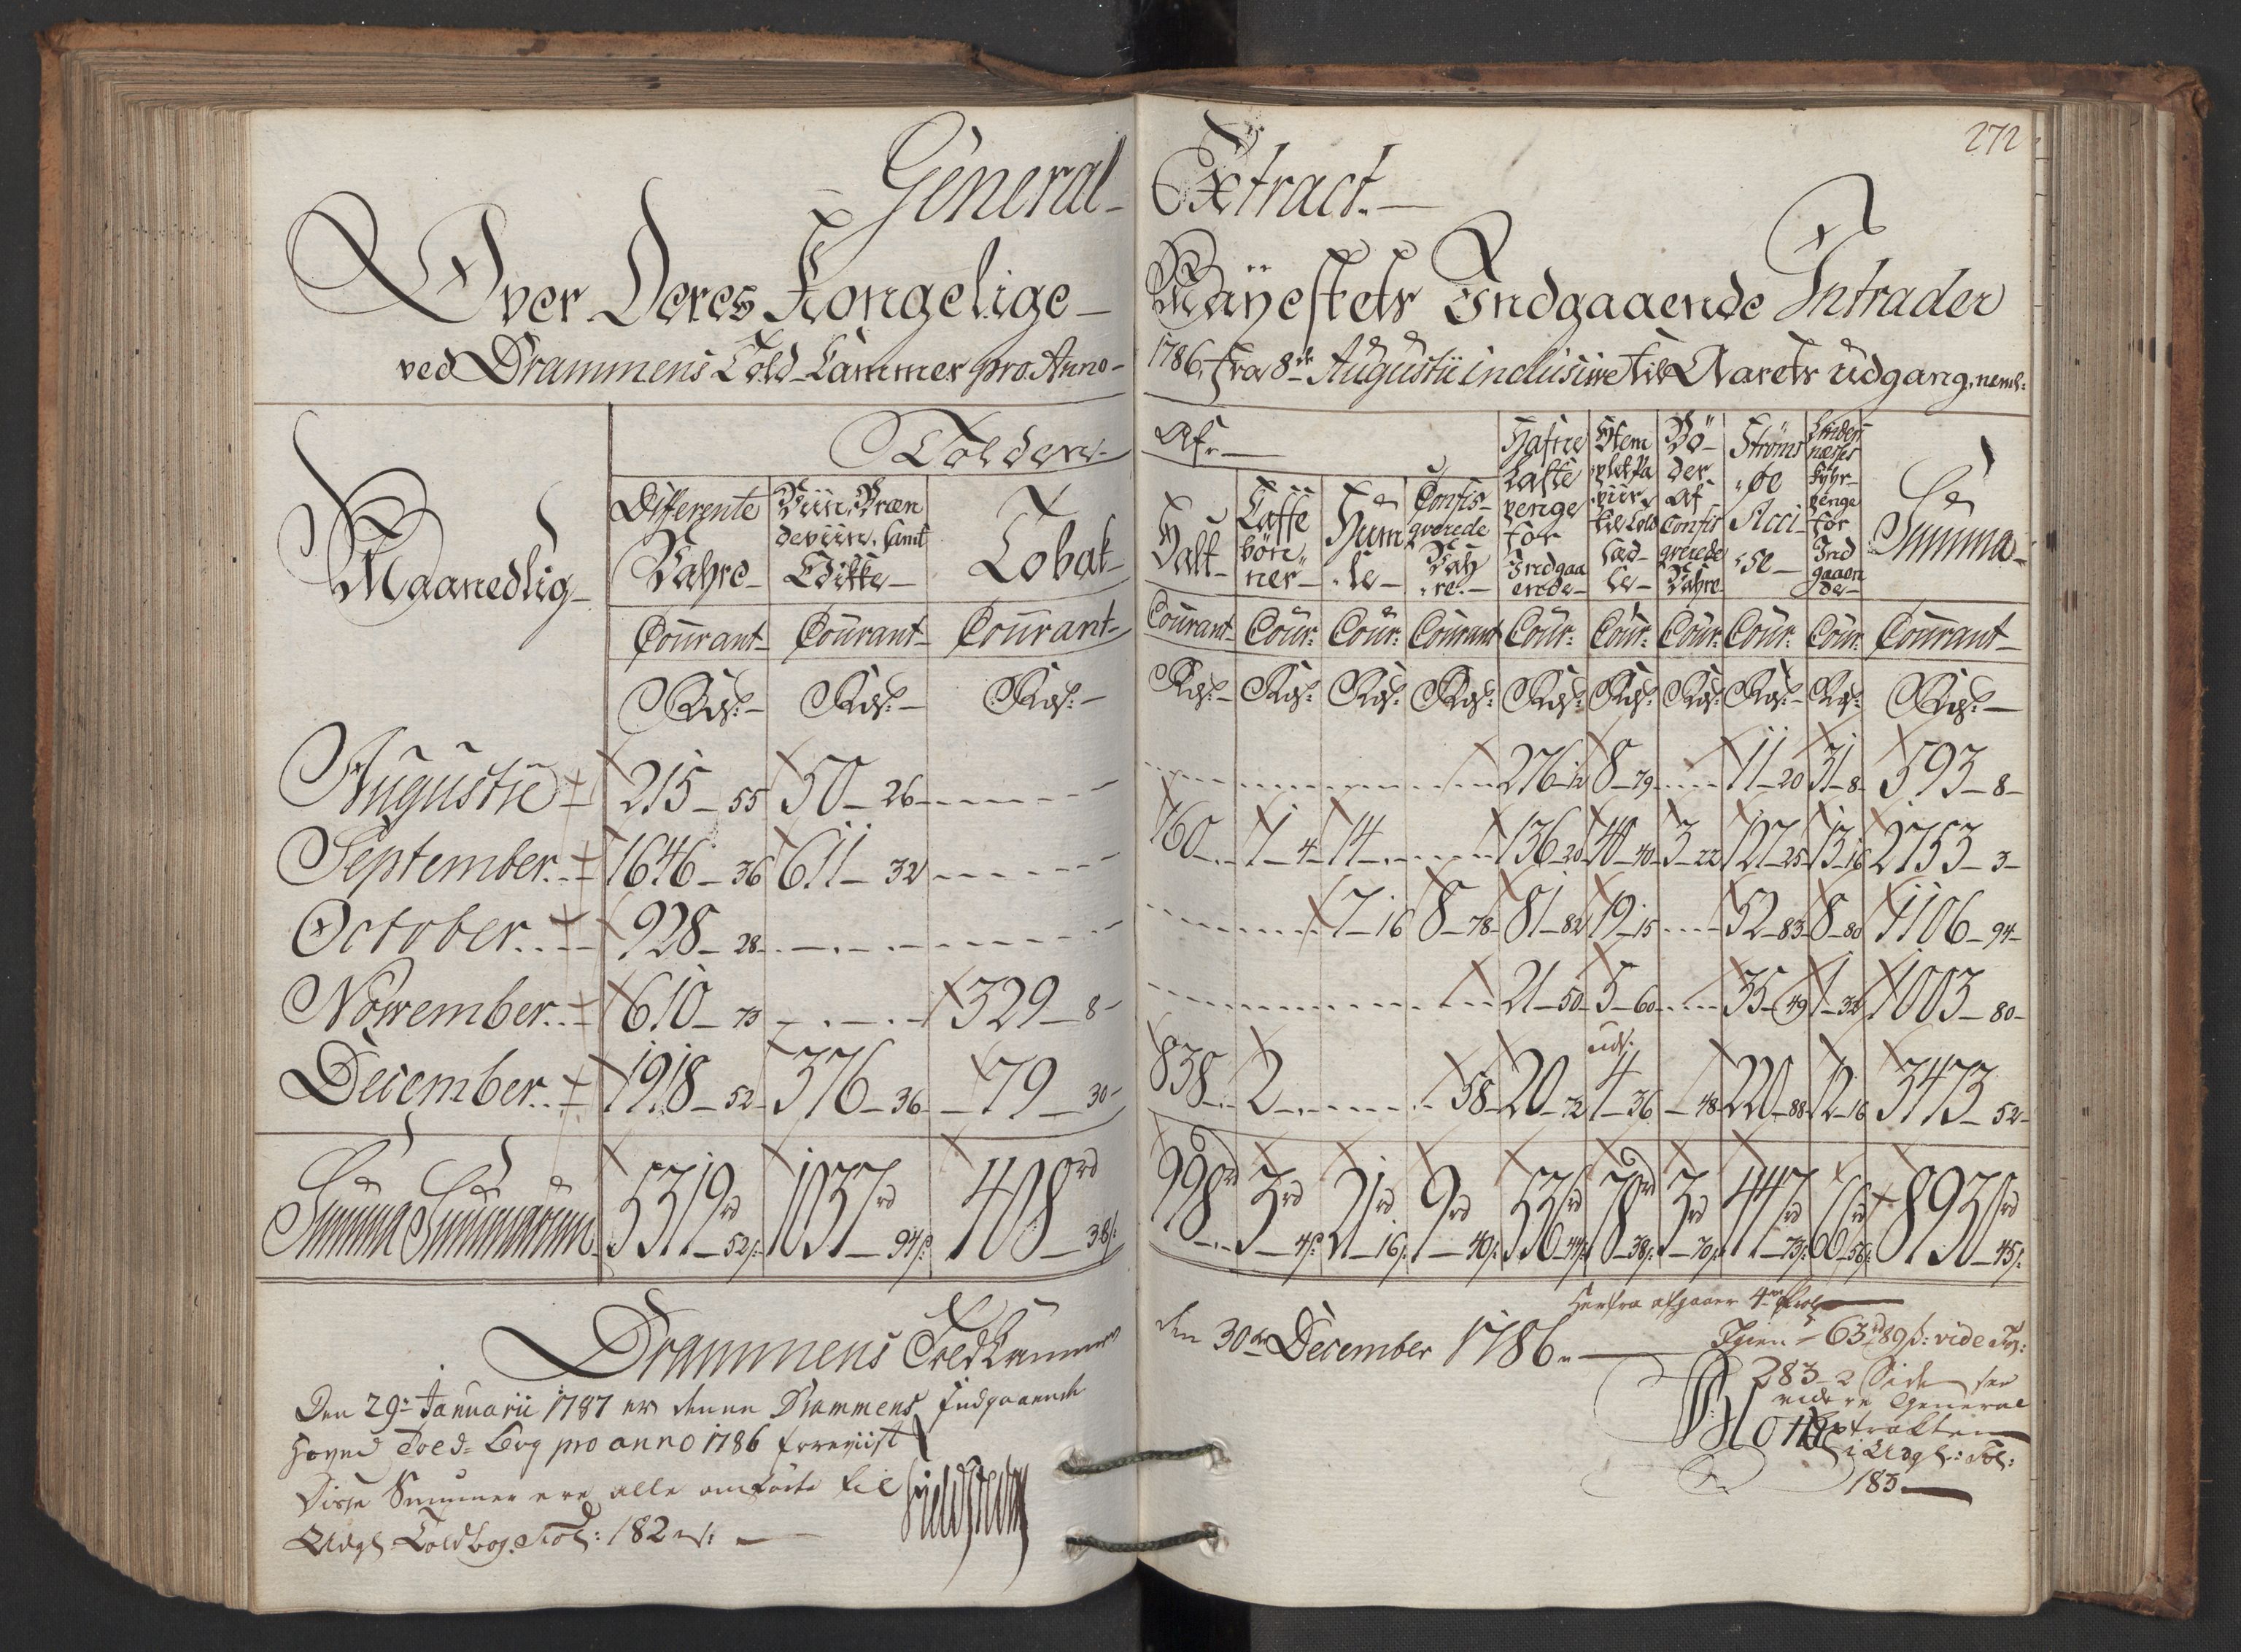 272
General- Extract.
Over Deres Kongelige Mayestets Indgaaende Intrader
ved Drammens Told-Cammer pro Anno 1786, fra 8de Augustii inclusive til Aarets udgang, neml:
Maanedlig
Tolden Af
Differente Vahre
Viin, Bræn deviin, samt Edikke
Tobak
Salt
Caffe bön- ner
Hum- le
Confis- qverede Vah- re
Hafne Laste penge for Indgaa ende
Stem plet Pa piir til Told Sed- le
Bö- der af Confis qverede Vahre
Ströms- öe Acci- se
Lindes- næsses Fyhr- penge for Ind gaaen de
Summa
Courant Courant Courant Courant Cour: Cour: Courant Cour: Cour: Cour: Cour: Cour: Courant
Rds: Rds: Rds: Rds: Rds: Rds: Rds: Rds: Rds: Rds: Rds: Rds: Rds:
Augustii 215-55 50-26 276-12 8-79 11-20 31-8 593-8
September 1646-36 611-32 160 1-4 14 136-20 40-40 3-22 127-25 13-16 2753-3
October 928-28 7-16 8-78 81-82 19-15 52-83 8-80 1106-94
November 610-73 329-8 21-50 5-60 35-49 1-32 1003-80
uds:
December 1918-52 376-36 79-30 838 2 58 20-72 4-36 48 220-88 12-16 3473-52
Summa Summarum 5319rd 52s: 1037rd 94s: 408rd 38s: 998rd 3rd 4s: 21rd 16s: 9rd 40s: 536rd 44s: 78rd 38s: 3rd 70s: 447rd 73s: 66rd 56s: 8930rd 45s:
Herfra afgaaer 4
Drammens Told Cammer den 30de December 1786.
Igien 63rd 89s: vide Fol:
283-2 Side see
videre General
Extracten
i Udg: Fol:
183
Den 29de Januarii 1787 er denne Drammens Indgaaende
Hoved Told-Bog pro anno 1786 foreviist
Disse Summer ere alle anförte til
Udg: Toldbog. Fol: 182